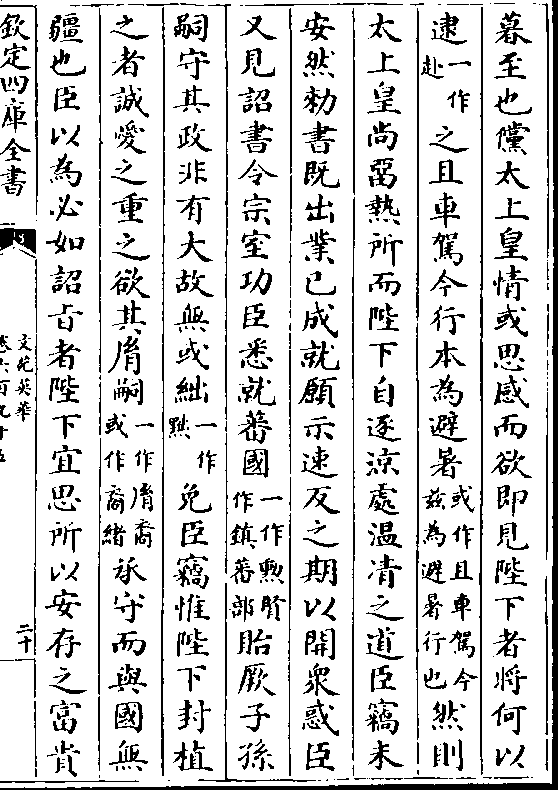 暮至也儻太上皇情或思感而欲即見陛下者將何以
逮一作赴之且車駕今行本為避暑或作且車駕今兹為避暑行也然則
太上皇尚留熱所而陛下自逐涼處温凊之道臣竊未
安然勅書既出業已成就願示速反之期以開衆惑臣
又見詔書令宗室功臣悉就蕃國一作勲賢作鎮蕃部貽厥子孫
嗣守其政非有大故無或絀一作黜免臣竊惟陛下封植
之者誠愛之重之欲其胤嗣一作胤裔或作裔緒承守而與國無
疆也臣以為必如詔㫖者陛下宜思所以安存之富貴
欽定四庫全書
文苑英華
卷六百九十五
二十